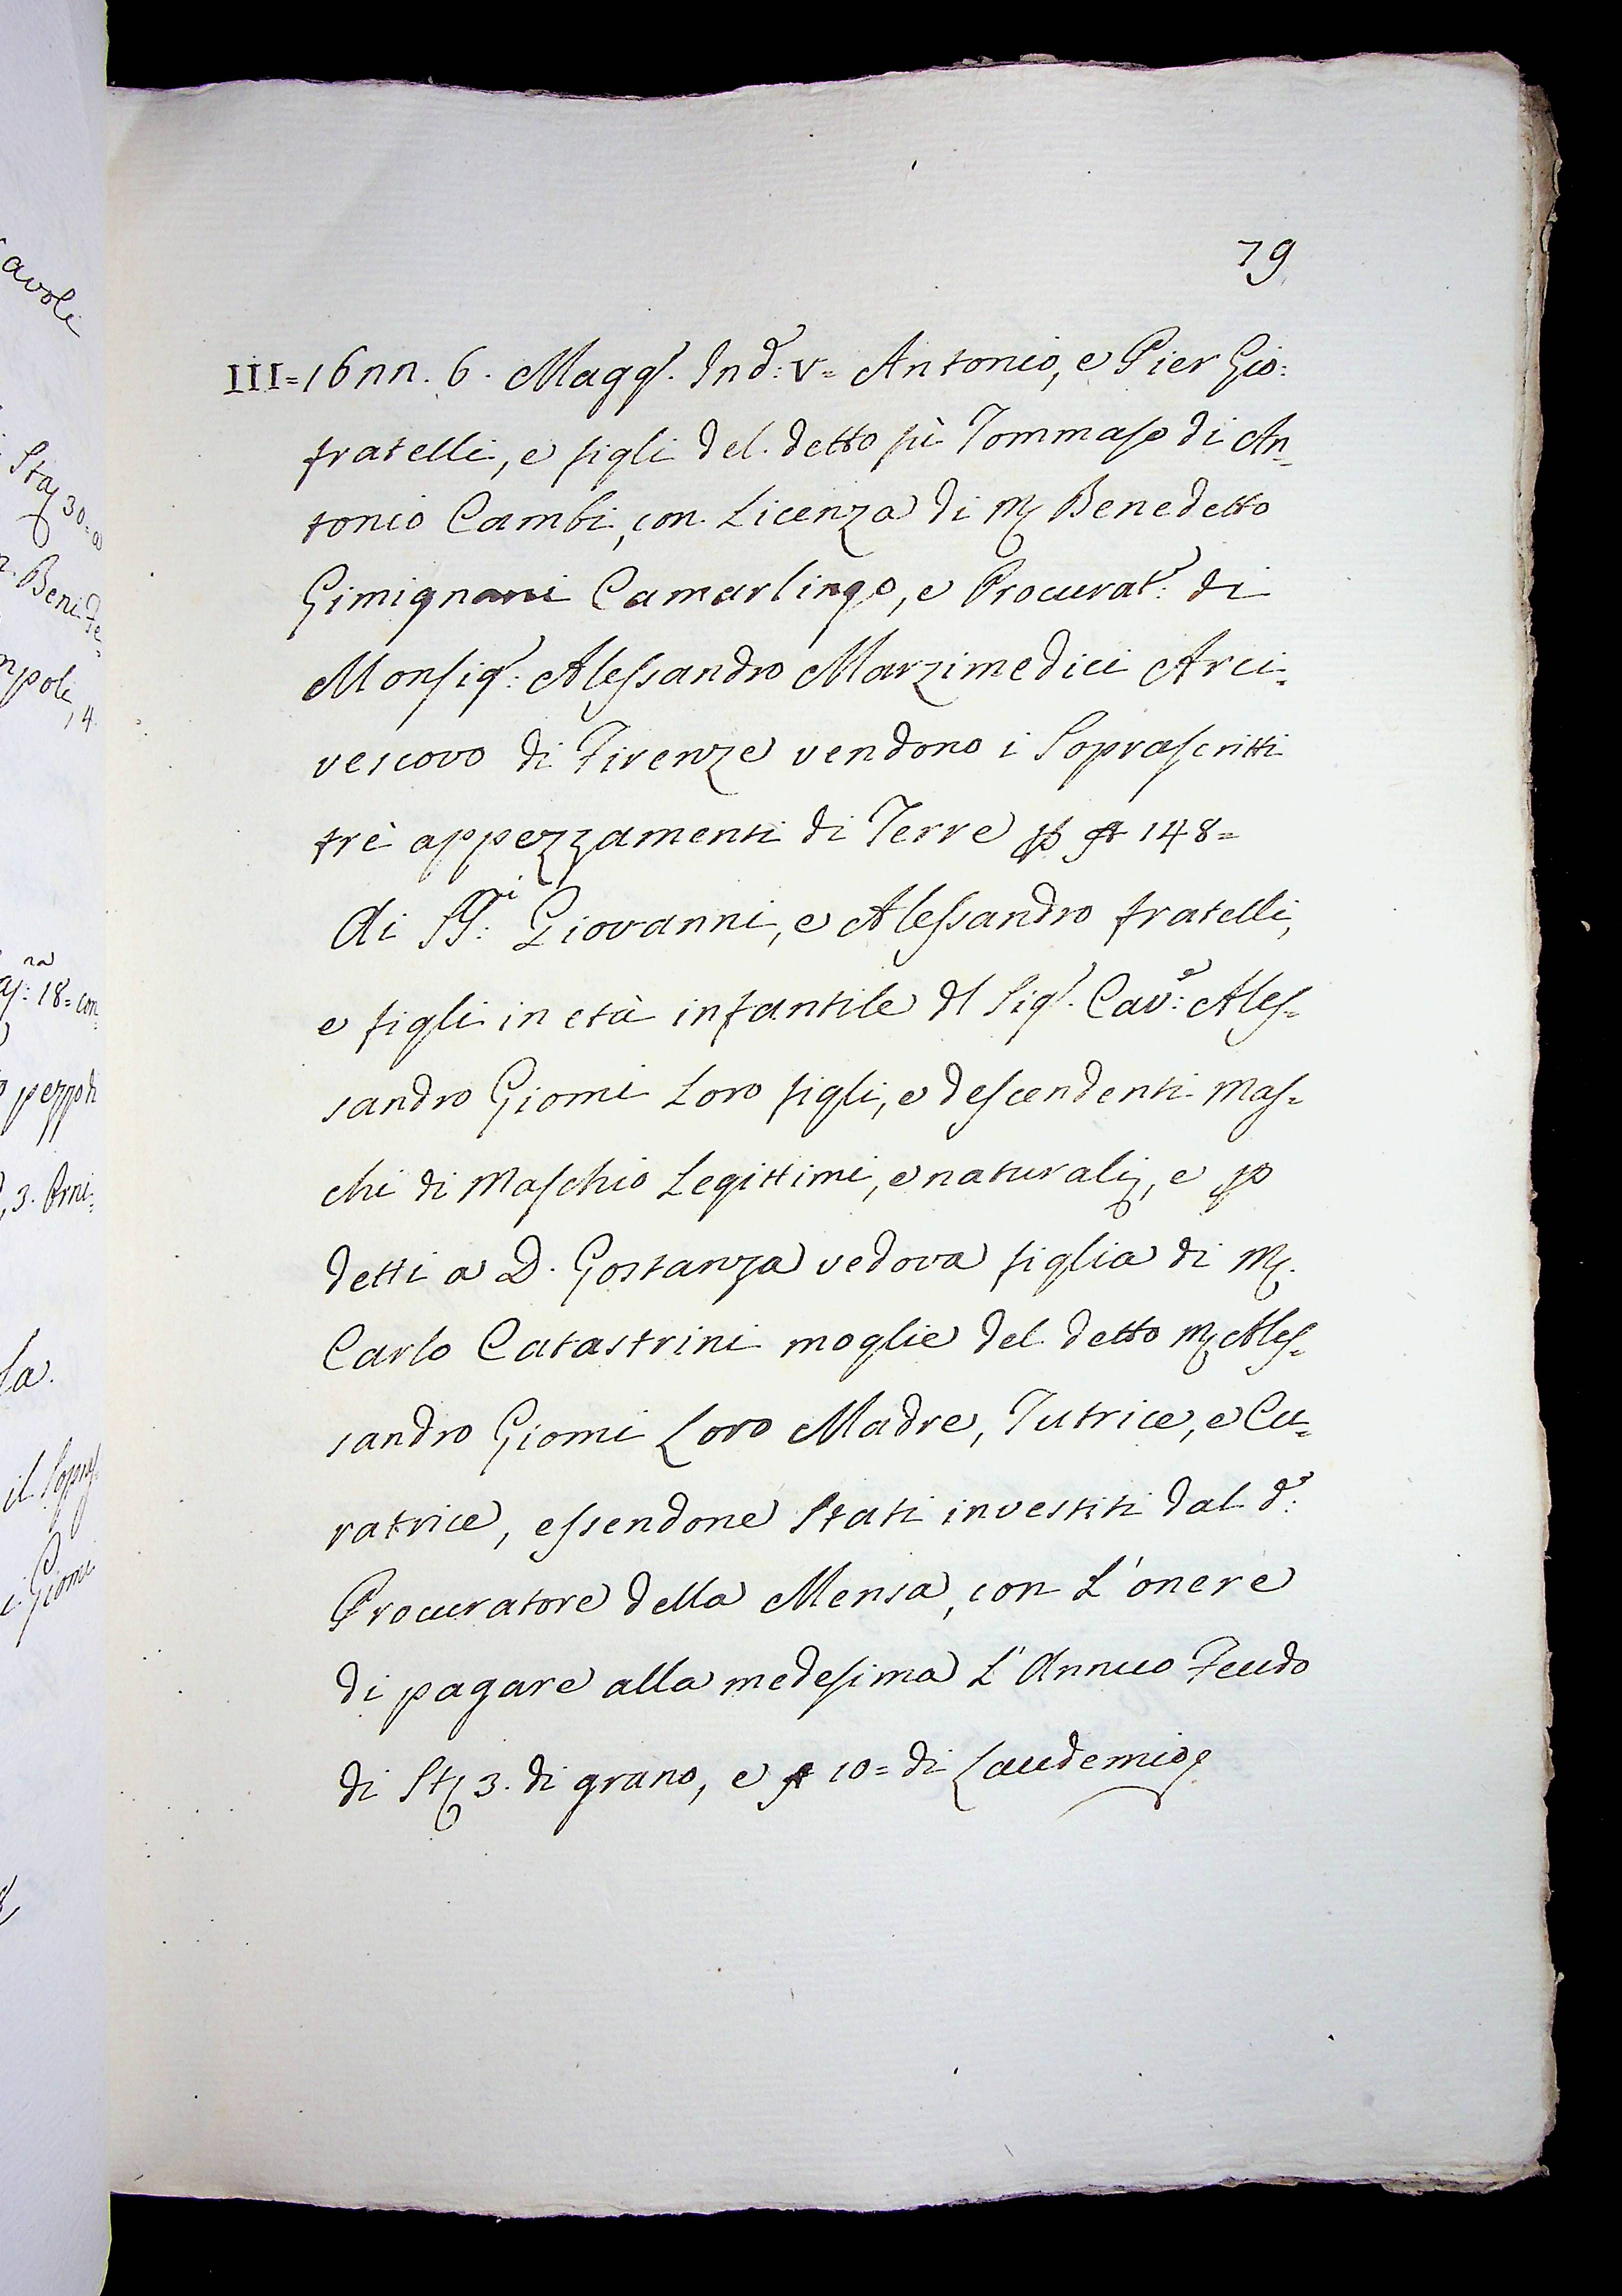 avole
Staj 30= a
Beni
mpoli, 14.
18= con
pezzo di
3. Orni=
la.
il Sopraſ
Giomi
79
III= 1622. 6. Magg.º Ind.: V= Antonio, e Pier Gio:
fratelli, e figli del detto fù Tommaso di An=
tonio Cambi, con Licenza di M. Benedetto
Gimignani Camarlingo, e Procurat.e di
Monsig.r: Alessandro Marzimedici Arci=
vescovo di Firenze vendono i Soprascritti
trè appezzamenti di Terre p 148=
Ai SS.ri: Giovanni, e Alessandro fratelli,
e figli in età infantile dl Sig.r Cav.e: Ales=
sandro Giomi Loro figli, e descendenti Mas=
chi di Maschio Legittimi, e naturali, e p
detti a D. Gostanza vedova figlia di M.
Carlo Catastrini moglie del detto M. Ales=
sandro Giomi Loro Madre, Tutrice, e Cu=
ratrice, essendone Stati investiti dal d.o:
Procuratore della Mensa, con L'onere
di pagare alla medesima L'Annuo Feudo
di St. 3. di grano, e 10= di Laudemio